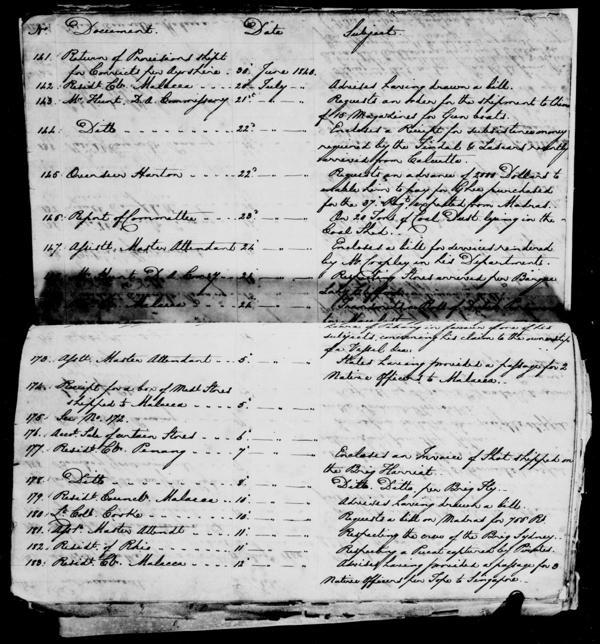 No. Document. Date Subject.
141. Return of Provisions shipt
for Convicts per Ayrshire . 30. June 1840.
142. Residt. Cr. Malacca . . . . . 20th July . . Advises having drawn a bill.
143. Mr. Hunt, D. A. Commissary 21st . . Requests an order for the shipment to China
of 15 Magazines for Gun boats.
144. Ditto . . . . . . 22d . . Encloses a Receipt for subsistence money
required by the Tindal & Lascars recently
arrived from Calcutta.
145. Overseer Hanton . . . . . 22d . . Requests an advance of 2000 Dollars to
enable him to pay for purchased
for the 37. Regt. expected from Madras.
146. Report of Committee . . . 23d . . On 20 Tons of Coal Dust lying in the
Coal Shed.
147. Assistt. Master Attendant 24 . . Encloses a bill for services rendered
by Mr. Copley in his Department.
Mr. Hunt D. A. Comy. 24 . . Respecting Stores arrived per Barque
Malacca . . . 24 . .
in favour of one of his
subjects, concerning his claim to the ownership
of a Vessel
173. Asstt. Master Attendant . . 5 . . States having provided a passage for 2
Native Officers to Malacca.
174. Receipt for a box of Medl. Stores
shipped to Malacca . . . 5 . .
175. See No. 172.
176. Acct. Sale of certain Stores . . 6 . .
177. Residt. Cr. Penang . . . 7 . . Encloses an Invoice of Shot shipped on
the Brig Harriet.
178. Ditto . . . . . 8 . . Ditto Ditto per Brig Fly.
179. Residt. Councr. Malacca . . 10 . . Advises having drawn a bill.
180. Lt. Coll. Cooke . . . 10 . . Requests a bill on Madras for 755 Rs.
181. Asst. Master Attendt. . . . 11 . . Respecting the crew of the Brig Sydney.
182. Residt. of Rhio . . . . . 11 . . Respecting a captured by Pirates.
183. Residt. Cr. Malacca . . . . 12 . . Advises having provided a passage for 3
Native Officers per Tope to Singapore.